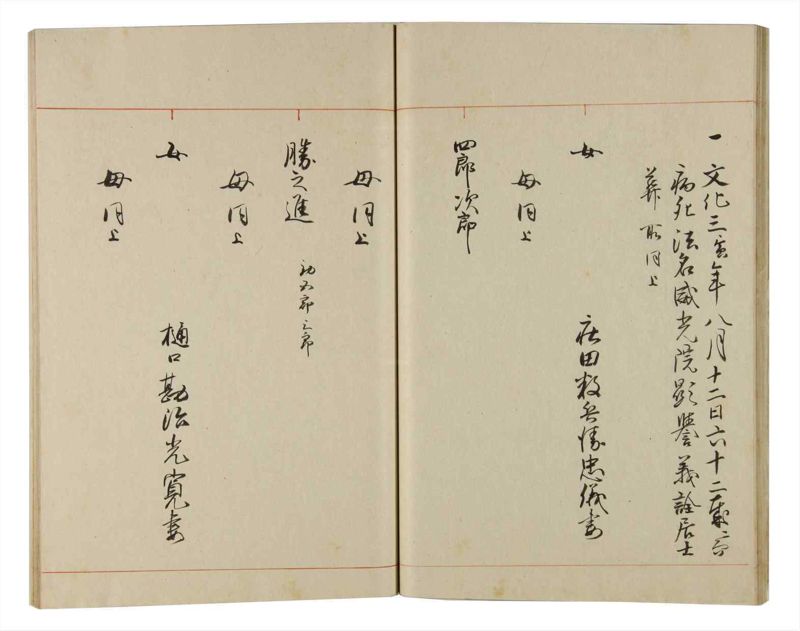 一 文化三寅年八月十二日六十二歳ニ而
病死法名威光院顕誉義詮居士
葬所同上
女
母同上 庄田数兵衛忠儀妻
四郎次郎
母同上
勝之進 初五郎三郎
母同上
女
母同上 樋口勘治光寛妻